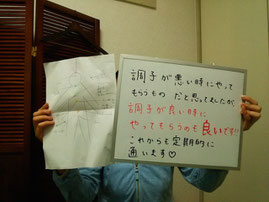 調子が悪い時にやって
もらうもの だと思ってましたが
調子が良い時に
やってもらうのも良いです!!
これからも定期的に
通います♡